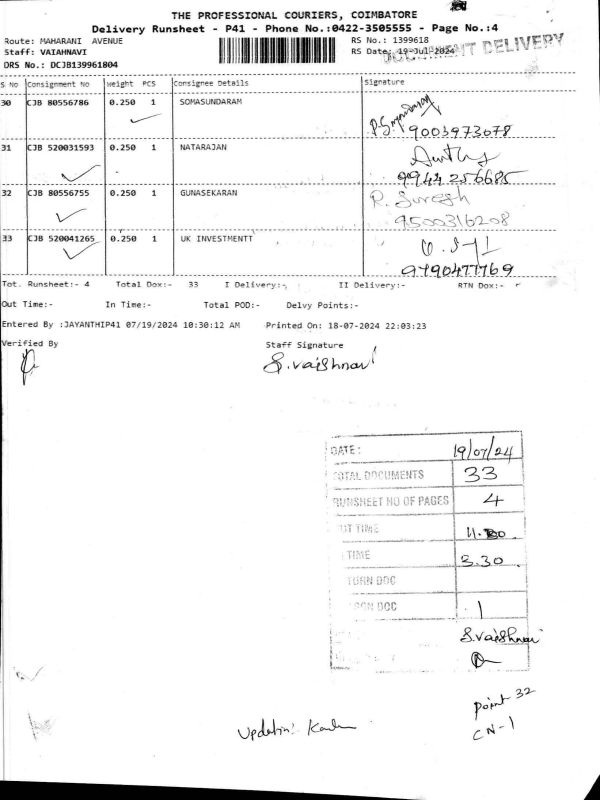 THE PROFESSIONAL COURIERS, COIMBATORE
Delivery Runsheet - P41 - Phone No.:0422-3505555 - Page No.:4
Route: MAHARANI AVENUE
RS No.: 1399618
Staff: VAIAHNAVI
RS Date: 19-Jul-2024
DOCUMENT DELIVERY
DRS No.: DCJB139961804
S No Consignment No Weight PCS Consignee Details Signature
30 CJB 80556786 0.250 1 SOMASUNDARAM
9003973078
31 CJB 520031593 0.250 1 NATARAJAN
9944256685
32 CJB 80556755 0.250 1 GUNASEKARAN R. Suresh
9500316208
33 CJB 520041265 0.250 1 UK INVESTMENTT
9790477769
Tot. Runsheet:- 4 Total Dox:- 33 I Delivery:- II Delivery:- RTN Dox:-
Out Time:- In Time:- Total POD:- Delvy Points:-
Entered By :JAYANTHIP41 07/19/2024 10:30:12 AM Printed On: 18-07-2024 22:03:23
Verified By Staff Signature
S.vaishnavi
DATE: 19/07/24
TOTAL DOCUMENTS 33
RUNSHEET NO OF PAGES 4
OUT TIME
TIME 3.30
TURN DOC
DOC 1
S.vaishnavi
Point 32
CN-1